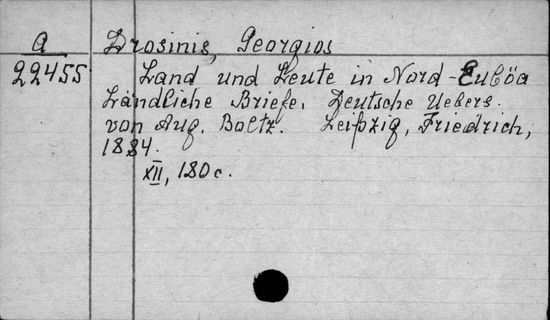 a Drosinis, Georgios
22455 Land und Leute in Nord-Euböa
Ländliche Briefe. Deutsche Uebers.
von Aug. Boltz. Leipzig, Friedrich,
1884.
XII, 180 c.